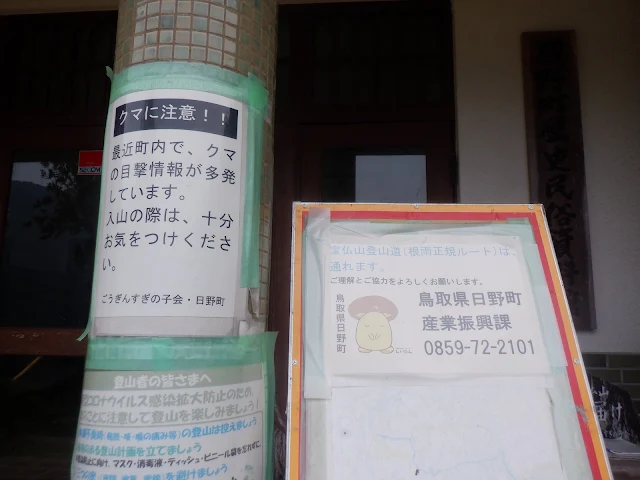 クマに注意！！
最近町内で、クマ
の目撃情報が多発
しています。
入山の際は、十分
お気をつけくださ
い。
ごうぎんすぎの子会・日野町
登山者の皆さまへ
コロナウイルス感染拡大防止のため、
ことに注意して登山を楽しみましょう！
の登山は控えましょう
登山計画を立てましょう
マスク・消毒液・ティッシュ・ビニール袋を忘れずに
を避けましょう
宝仏山登山道（根雨正規ルート）は、
通れます。
ご理解とご協力をよろしくお願いします。
鳥取県日野町
鳥取県日野町
産業振興課
0859-72-2101
歴史民俗資料